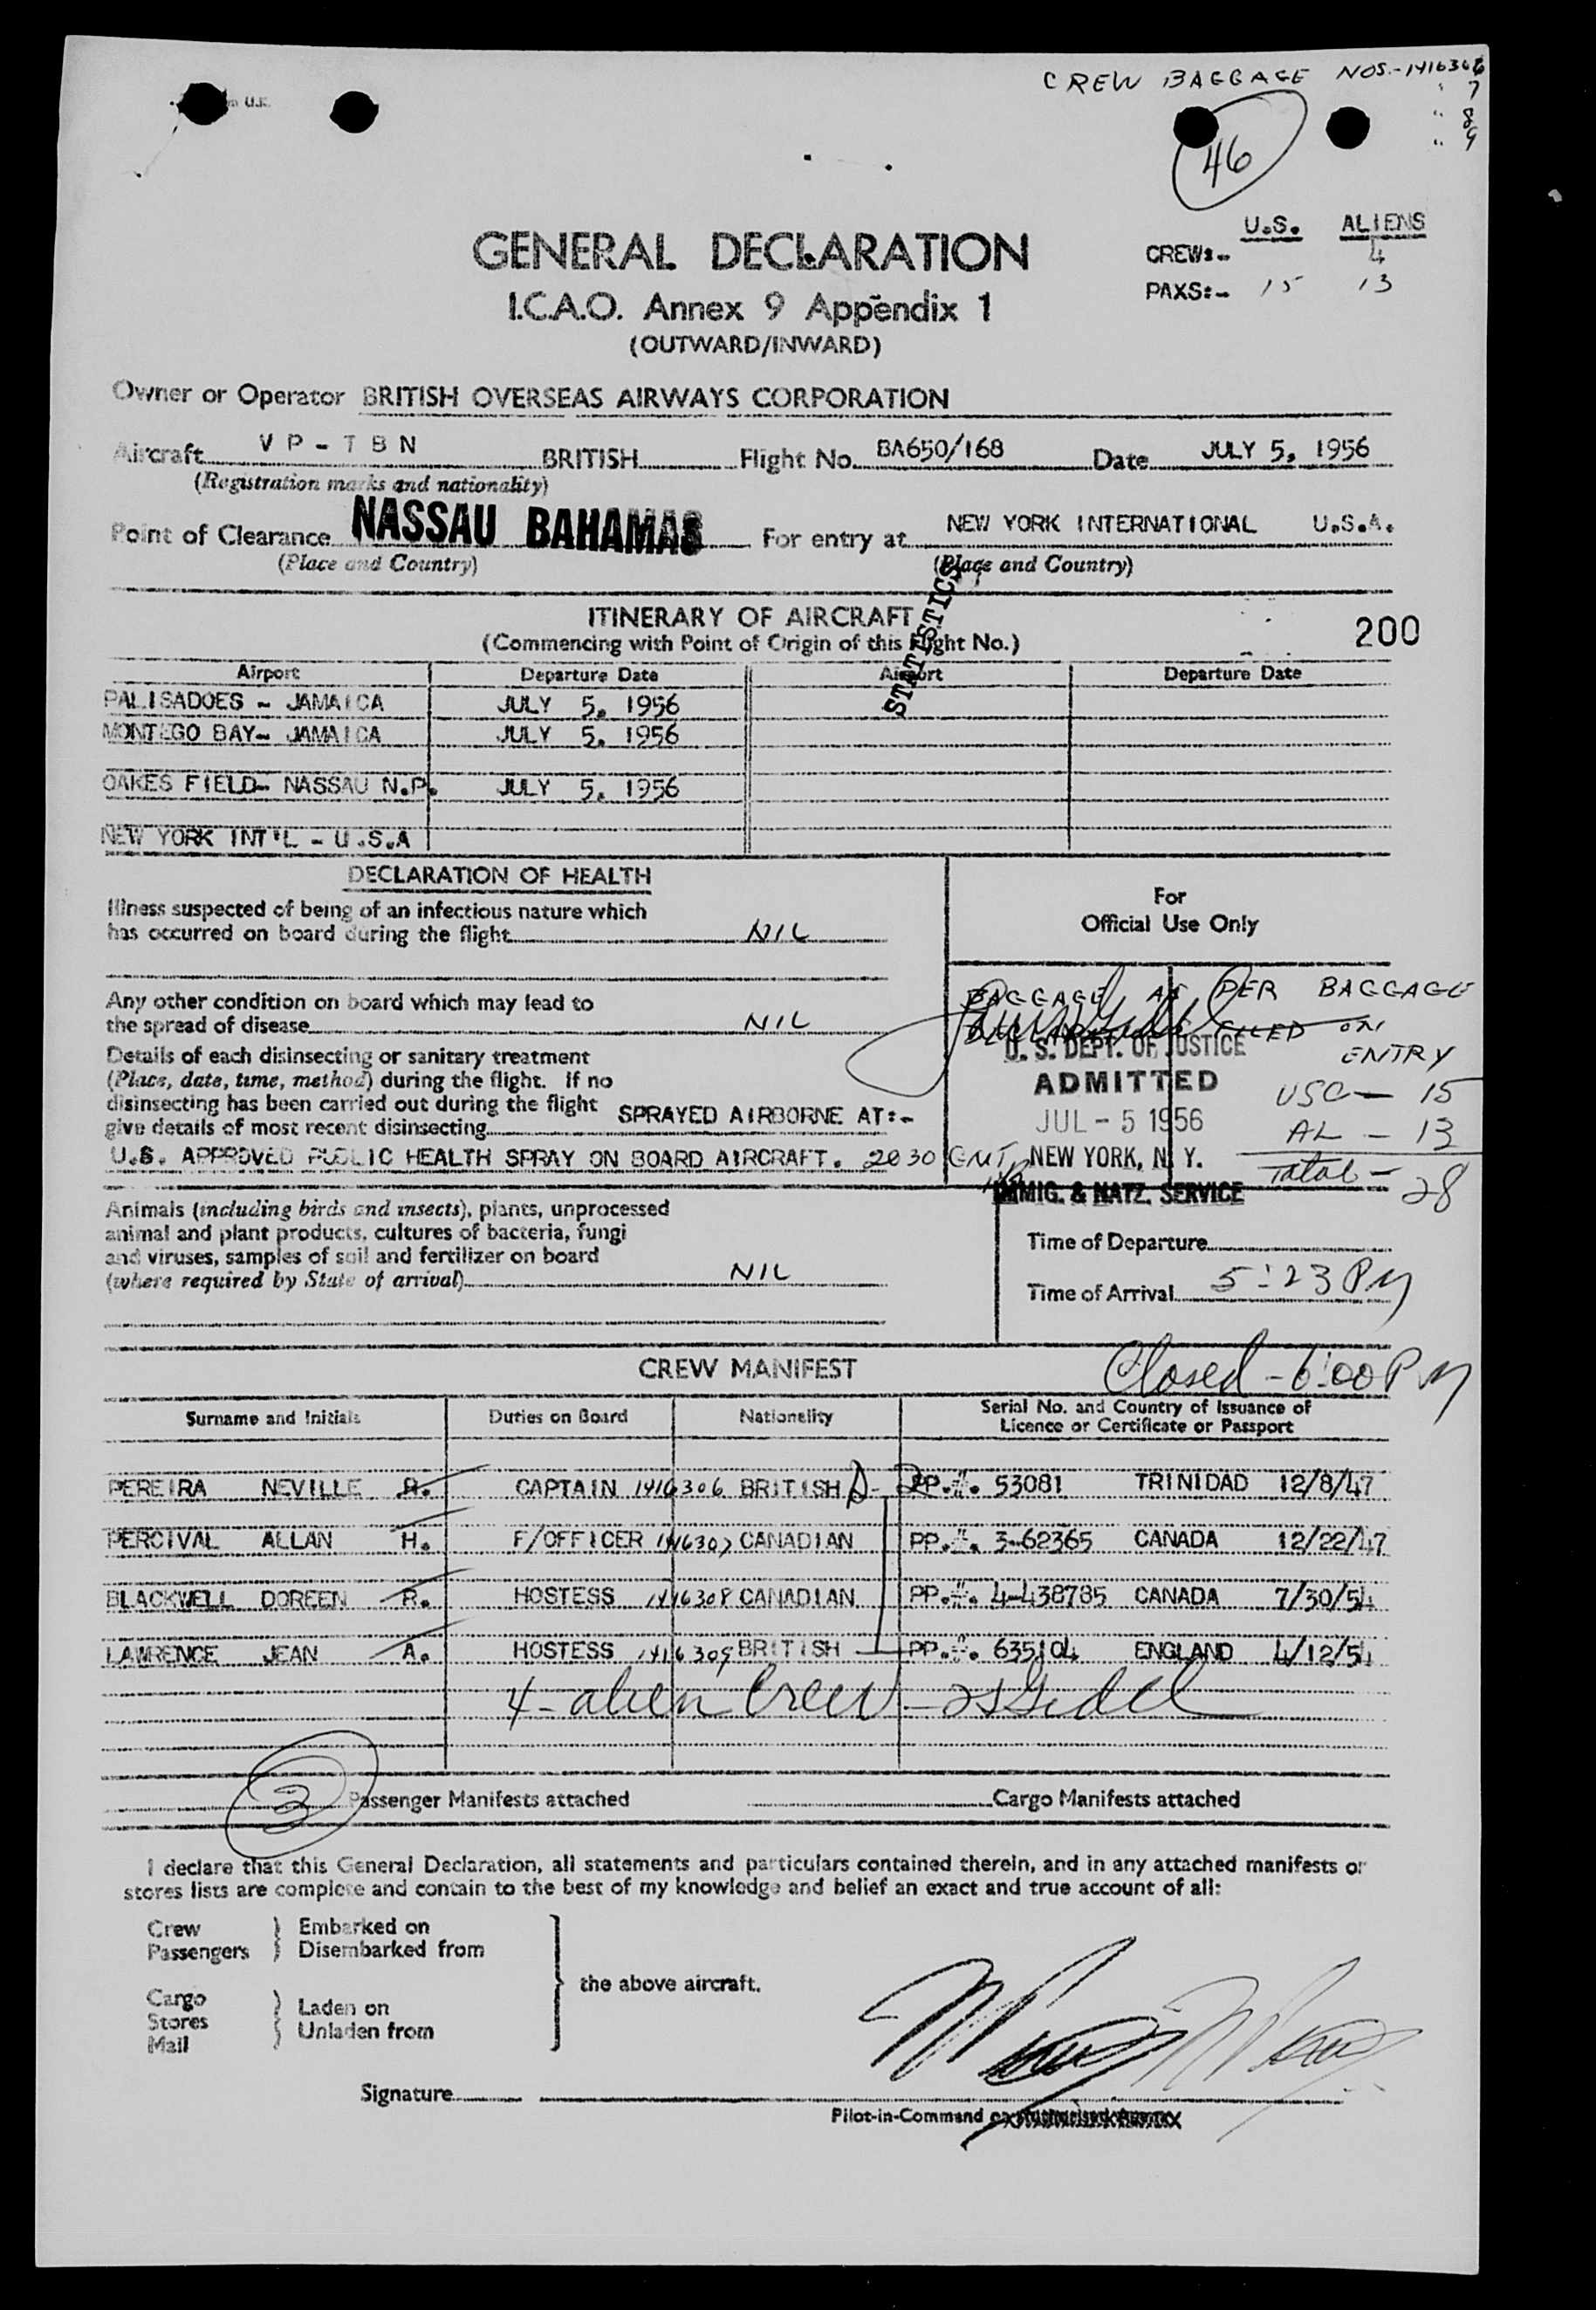 CREW BAGGAGE NOS.-1416306
" 7
" 8
" 9
46
U.S. ALIENS
CREW:- 4
PAXS:- 15 13
GENERAL DECLARATION
I.C.A.O. Annex 9 Appendix 1
(OUTWARD/INWARD)
Owner or Operator BRITISH OVERSEAS AIRWAYS CORPORATION
Aircraft VP-TBN BRITISH Flight No. BA650/168 Date JULY 5, 1956
(Registration marks and nationality)
Point of Clearance NASSAU BAHAMAS For entry at NEW YORK INTERNATIONAL U.S.A.
(Place and Country) (Place and Country)
STATISTICS
ITINERARY OF AIRCRAFT
200
(Commencing with Point of Origin of this Flight No.)
Airport Departure Date Airport Departure Date
PALISADOES - JAMAICA JULY 5, 1956
MONTEGO BAY- JAMAICA JULY 5, 1956
OAKES FIELD- NASSAU N.P. JULY 5, 1956
NEW YORK INT'L - U.S.A
DECLARATION OF HEALTH
Illness suspected of being of an infectious nature which
has occurred on board during the flight NIL
Any other condition on board which may lead to
the spread of disease NIL
Details of each disinsecting or sanitary treatment
(Place, date, time, method) during the flight. If no
disinsecting has been carried out during the flight
give details of most recent disinsecting SPRAYED AIRBORNE AT:-
U.S. APPROVED PUBLIC HEALTH SPRAY ON BOARD AIRCRAFT. 2030 GMT
For
Official Use Only
BAGGAGE AS PER BAGGAGE
FILED ON
ENTRY
U. S. DEPT. OF JUSTICE
ADMITTED
JUL - 5 1956
NEW YORK, N. Y.
IMMIG. & NATZ. SERVICE
USC - 15
AL - 13
Total - 28
Animals (including birds and insects), plants, unprocessed
animal and plant products, cultures of bacteria, fungi
and viruses, samples of soil and fertilizer on board
(where required by State of arrival) NIL
Time of Departure
Time of Arrival 5:23 PM
Closed - 6:00 PM
CREW MANIFEST
Surname and Initials Duties on Board Nationality Serial No. and Country of Issuance of
Licence or Certificate or Passport
PEREIRA NEVILLE R. CAPTAIN 1416306 BRITISH D- PP.#. 53081 TRINIDAD 12/8/47
PERCIVAL ALLAN H. F/OFFICER 1416307 CANADIAN PP.#. 3-62365 CANADA 12/22/47
BLACKWELL DOREEN R. HOSTESS 1416308 CANADIAN PP.#. 4-438785 CANADA 7/30/54
LAWRENCE JEAN A. HOSTESS 1416309 BRITISH PP.#. 635104 ENGLAND 4/12/54
4 - alien Crew -
3 Passenger Manifests attached Cargo Manifests attached
I declare that this General Declaration, all statements and particulars contained therein, and in any attached manifests or
stores lists are complete and contain to the best of my knowledge and belief an exact and true account of all:
Crew Embarked on
Passengers Disembarked from
the above aircraft.
Cargo
Stores Laden on
Mail Unladen from
Signature
Pilot-in-Command or Authorised Agent